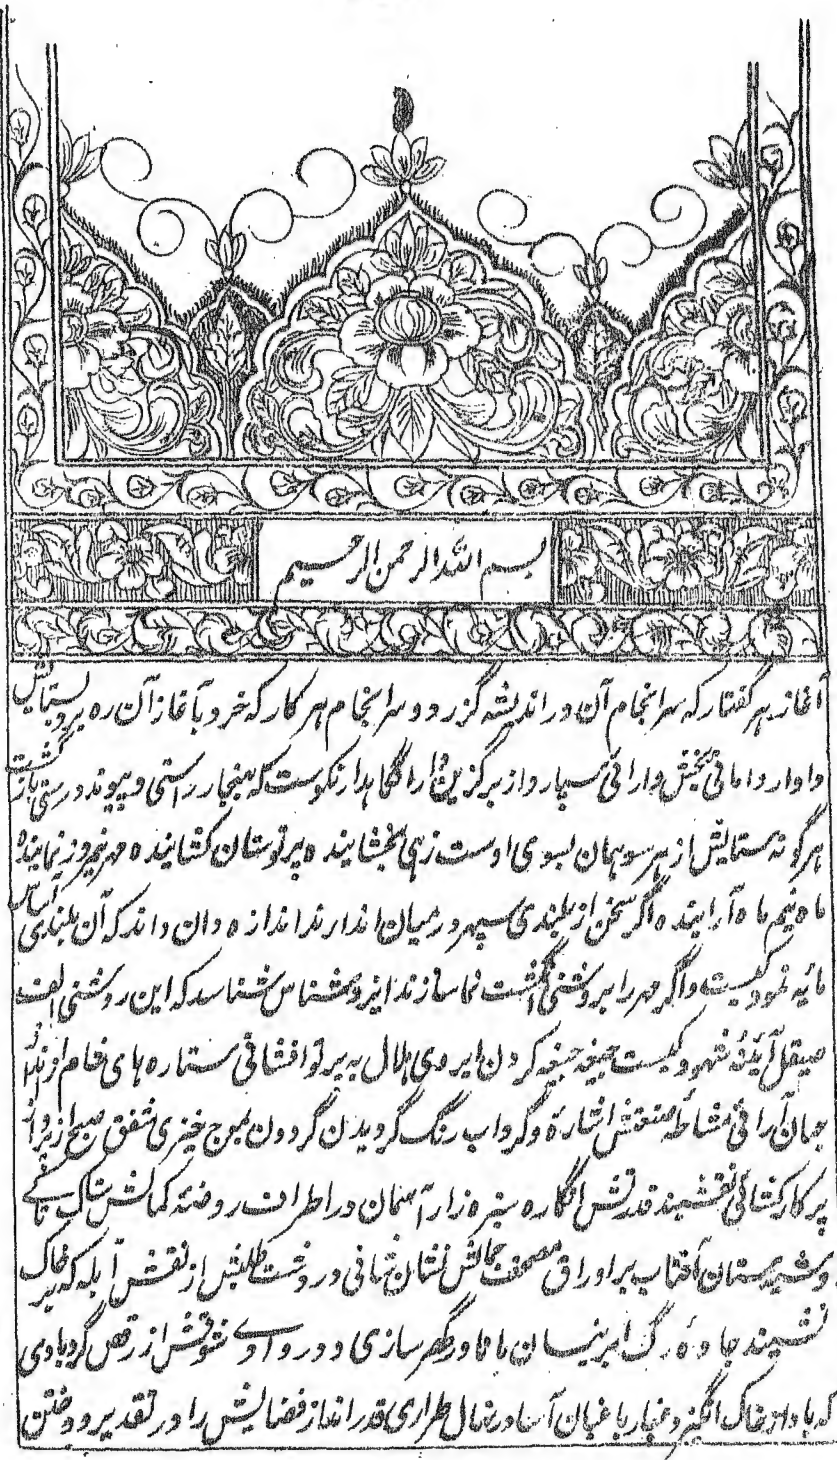 بسم الله الرحمن الرحیم
آغاز ہر گفتار کہ سرانجام آن در اندیشہ گزرد و سرانجام ہر کار کہ خرد بآغاز آن رہ برد بستایش
داوار دامائی بخش دارائی سپار و از برگزین فرا را نگاہدار نکوست کہ ہنجار راستی و پیوند درستی بازگشت
ہر گونہ ستایش از ہر سو ہمان بسوی اوست زہی بخشایندہ پرتوستان کشایندہ مہر نیمروز نمایندہ
ماہ نیم ماہ آرایندہ اگر سخن از بلندی سپہر در میان اندازند اندازہ دان داند کہ آن بلندی اساس
مایہ نمود کیست و اگر مہر را بروشنی انگشت نما سازند ایزد شناس شناسد کہ این روشنی الف
صیقل آئینہ شہود کیست جبغہ جبغہ کردن ابروی ہلال بہ پرتو افشانی ستارہ ہای
جہان آرائی مشاطہ صنعتش اشارۂ و گرداب رنگ گردیدن گردون بموج خیزی شفق صبح از پرداز
پرکار کشائی نقشبند قدرتش انگارہ سبزہ زار آسمان در اطراف روضہ کمالش تاک تاکے
و شبستان آفتاب بر اوراق مصحف جمالش نشان در دشت طلبش از نقش آبلہ کہ بر خاک
نشیند جادہ رگ ابر نیسان گہر سازی و در وادے شوقش از رقص گردبادی
کہ باد از خاک انگیزد غبار باغبان آسا در نہال طرازی قدر انداز قضایش را در تقدیر دوختن